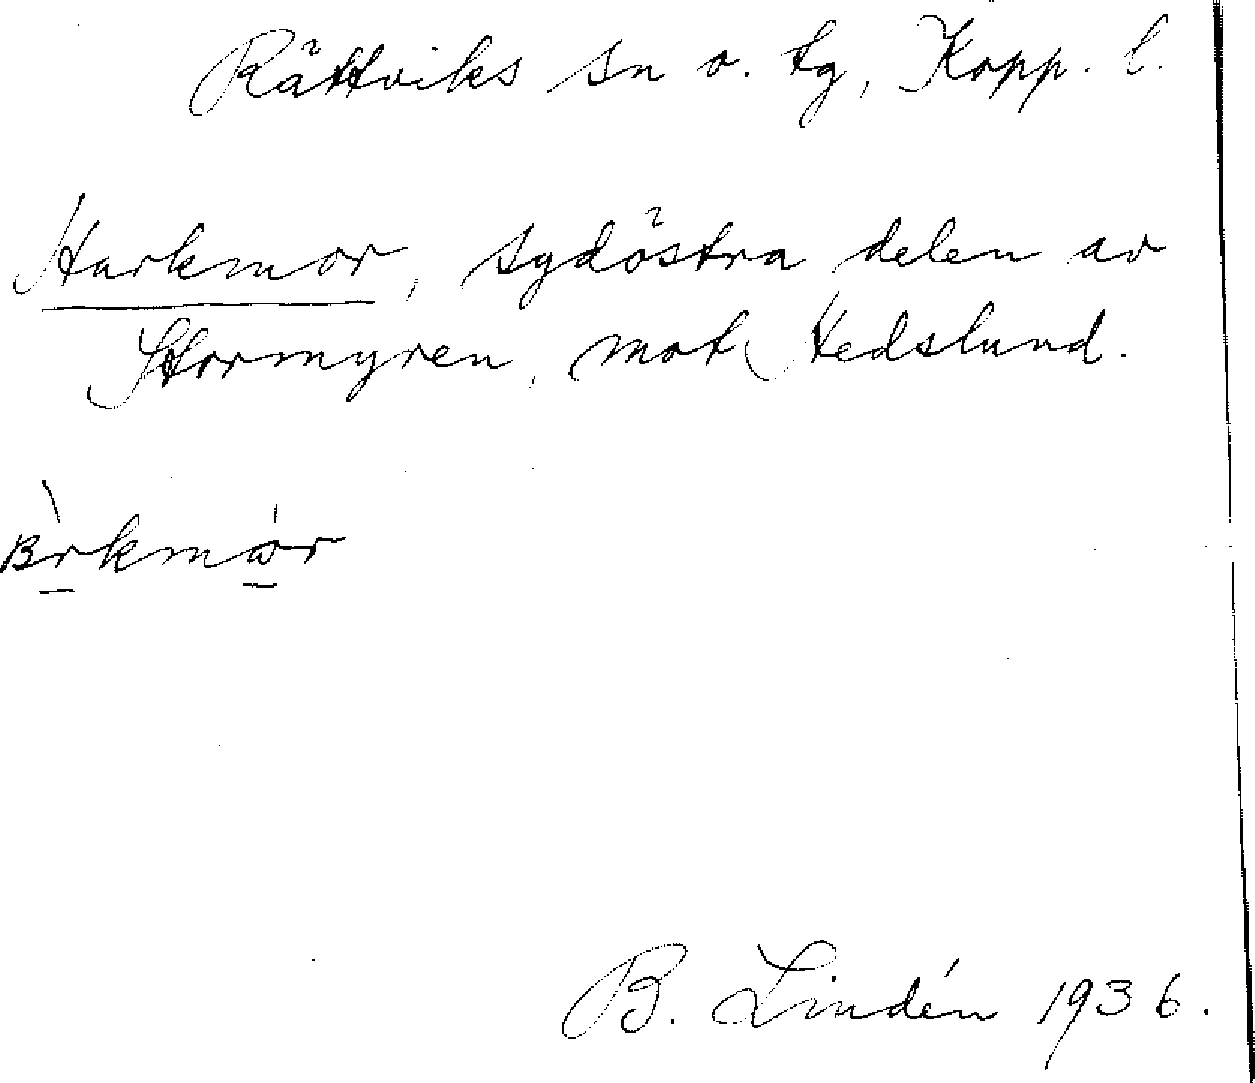 Rättviks sn o. tg, Kopp. l.
Harkmor, sydöstra delen av
Stormyren, mot Hedslund.
B. Lindén 1936.